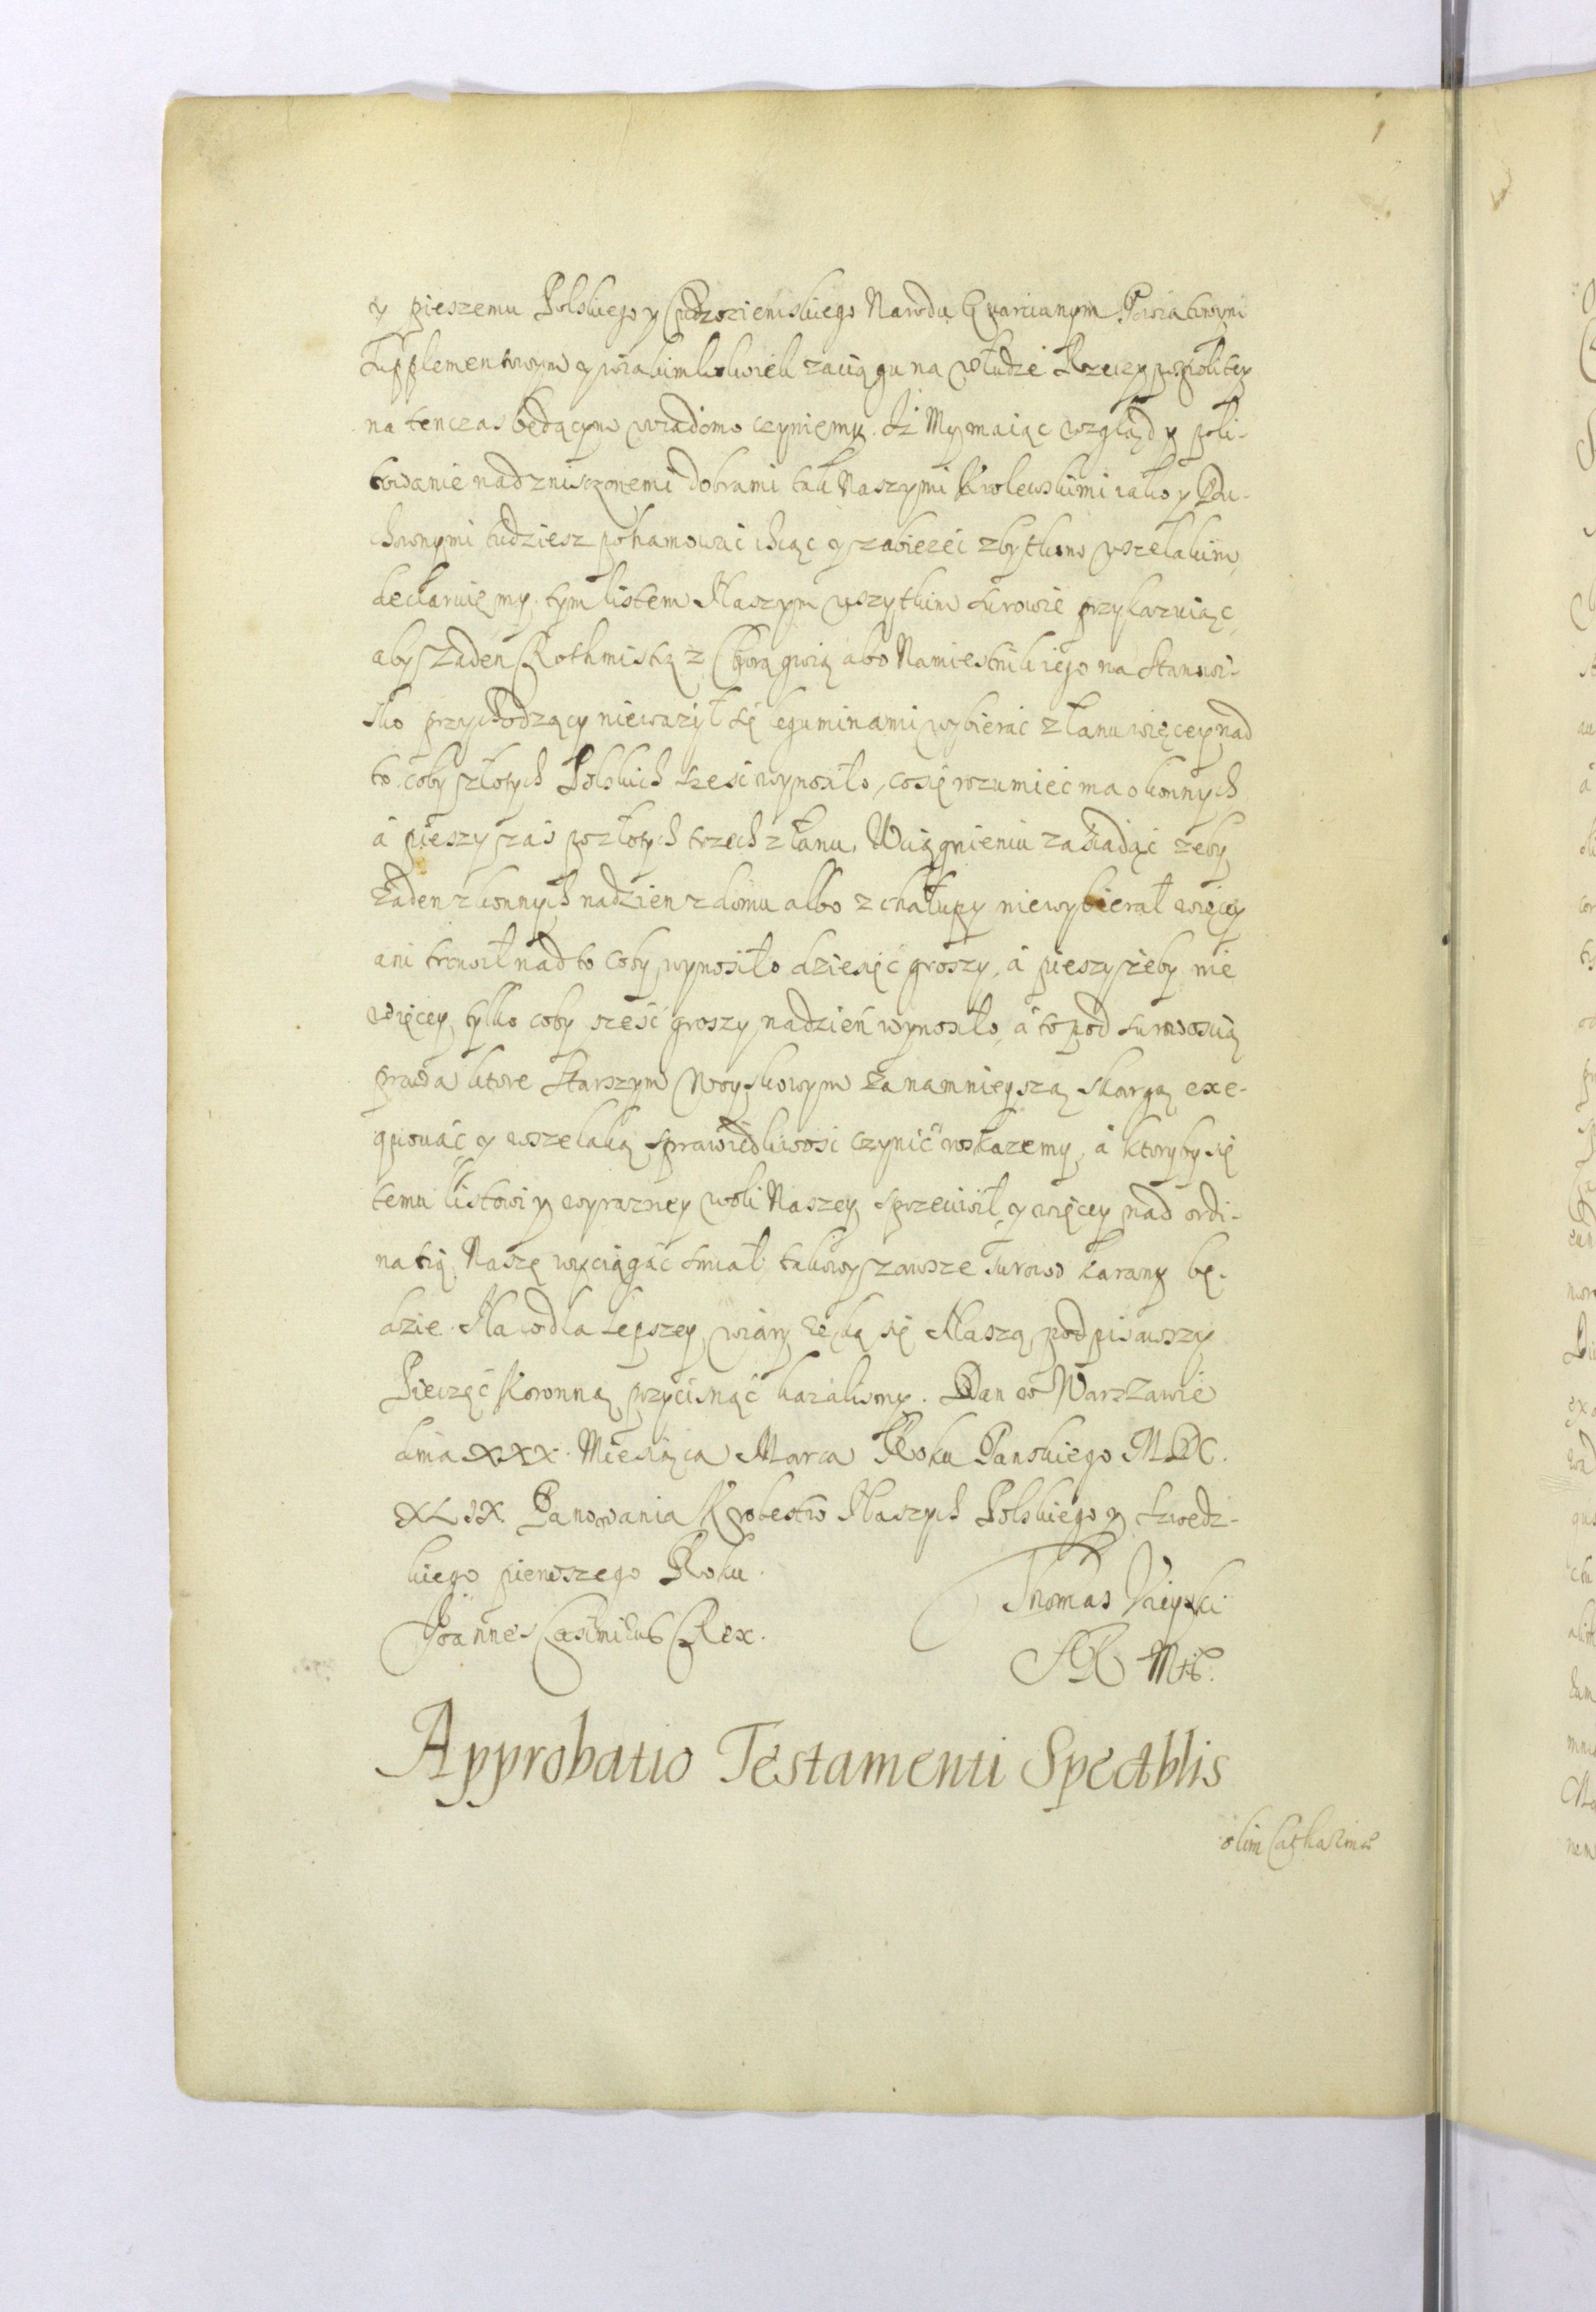 y pieszemu Polskiego y Cudzoziemskiego Narodu Quarcianym Powiatowym
Supplementowym y w iakimkolwiek zaciągu na służbie Rzeczypospolitey
na ten czas będącym wiadomo czyniemy. Iż My maiąc wzgląd y poli-
towanie nad zniszczonemi dobrami tak Naszymi Krolewskimi iako y Du-
chownymi tudziesz pohamować chcąc y zabieżeć zbytkom wszelakim,
declaruięmy tym listem Naszym wszytkim surowie przykazuiąc
aby żaden Rothmistrz z Chorągwią abo Namiestnik iego na Stanowi-
sko przychodzący nieważył się leguminami wybierać z łanu więcey nad
to coby złotych Polskich sześć wynosiło, co się rozumieć ma o konnych
á pieszy zaś po złotych trzech z łanu, W ciągnieniu zaś żeby
żaden z konnych na dzien z domu albo z chałupy niewybierał więcey
ani trawił nad to coby wynosiło dziesięć groszy, á pieszy żeby nie
więcey tylko coby sześć groszy na dzień wynosiło, á to pod surowością
prawa ktore Starszym Woyskowym za namnieyszą skargą exe-
quować y wszelaką sprawiedliwość czynić wskażemy, á ktoryby się
temu listowi y wyrazney woli Naszey sprzeciwił y więcey nad ordi-
natią Naszę wyciągać smiał takowy zawsze surowo karany bę-
dzie. Na co dla lepszey wiary ręką się Naszą podpisawszy
Pieczęć Koronną przycisnąć kazalismy. Dan w Warszawie
dnia XXX. Miesiąca Marca Roku Panskiego MDC.
XLIX. Panowania Krolestw Naszych Polskiego y Szwedz-
kiego pierwszego Roku.
Joannes Casimirus Rex.
Thomas Uieyski
SRMtis.
Approbatio Testamenti Spectblis
olim Catharinae